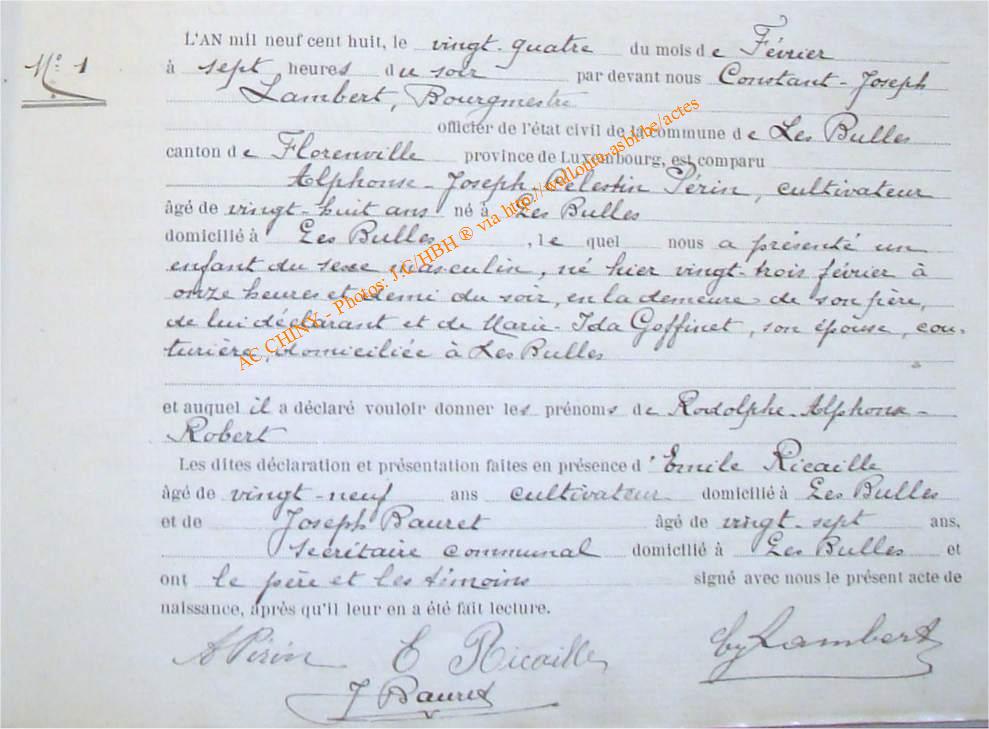 Nº 1
L'AN mil neuf cent huit, le vingt-quatre du mois de Février
à sept heures du soir par devant nous Constant-Joseph
Lambert, Bourgmestre
officier de l'état civil de la commune de Les Bulles
canton de Florenville province de Luxembourg, est comparu
Alphonse-Joseph-Célestin Périn, cultivateur
âgé de vingt-huit ans né à Les Bulles
domicilié à Les Bulles, le quel nous a présenté un
enfant du sexe masculin, né hier vingt-trois février à
onze heures et demi du soir, en la demeure de son père,
de lui déclarant et de Marie-Ida Goffinet, son épouse, cou-
turière, domiciliée à Les Bulles
et auquel il a déclaré vouloir donner les prénoms de Rodolphe-Alphonse-
Robert
Les dites déclaration et présentation faites en présence d'Emile Ricaille
âgé de vingt-neuf ans cultivateur domicilié à Les Bulles
et de Joseph Bauret âgé de vingt-sept ans,
secrétaire communal domicilié à Les Bulles et
ont le père et les témoins signé avec nous le présent acte de
naissance, après qu'il leur en a été fait lecture.
A Périn E Ricaille Lambert
J Bauret
AC CHINY - Photos: J.C/HBH ® via http://wallonia-asbl.be/actes